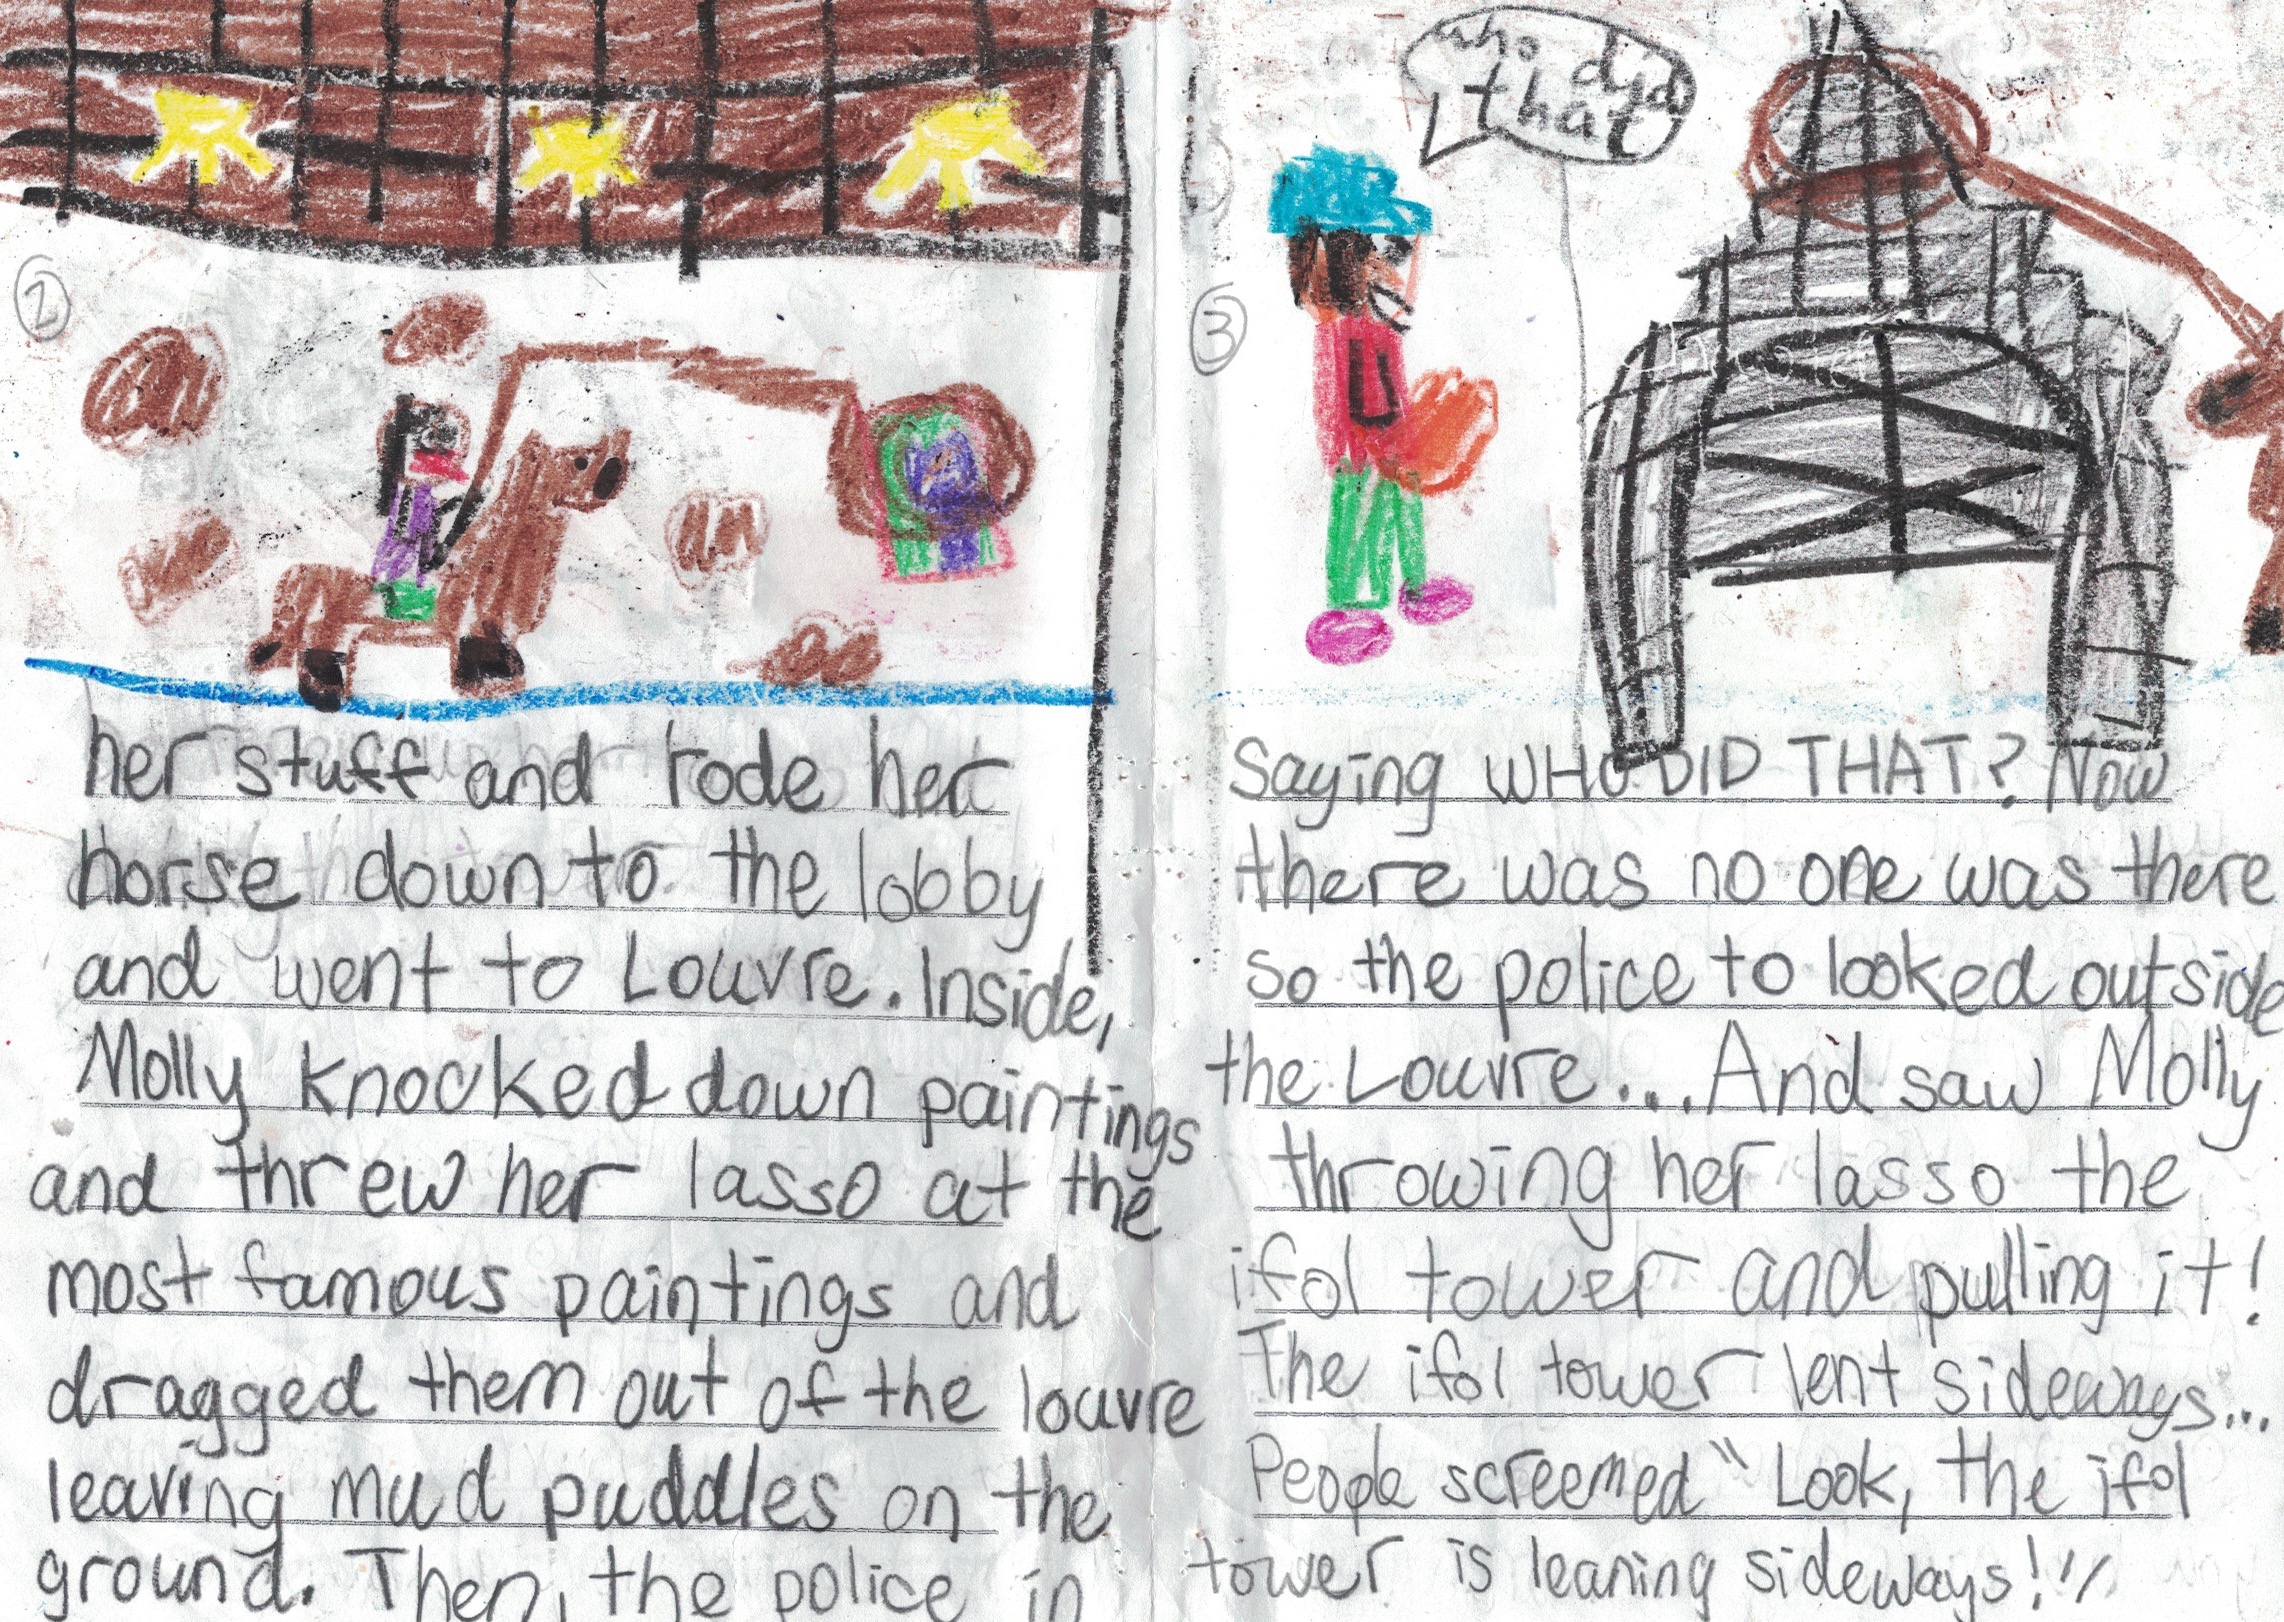 2
her stuff and rode her
horse down to the lobby
and went to Louvre. Inside,
Molly knocked down paintings
and threw her lasso at the
most famous paintings and
dragged them out of the louvre
leaving mud puddles on the
ground. Then, the police in
who did
that
3
Saying WHO DID THAT? Now
there was no one was there
so the police to looked outside
the Louvre....And saw Molly
throwing her lasso the
ifol tower and pulling it!
The ifol tower lent sideways...
People screemed "Look, the ifol
tower is leaning sideways!"